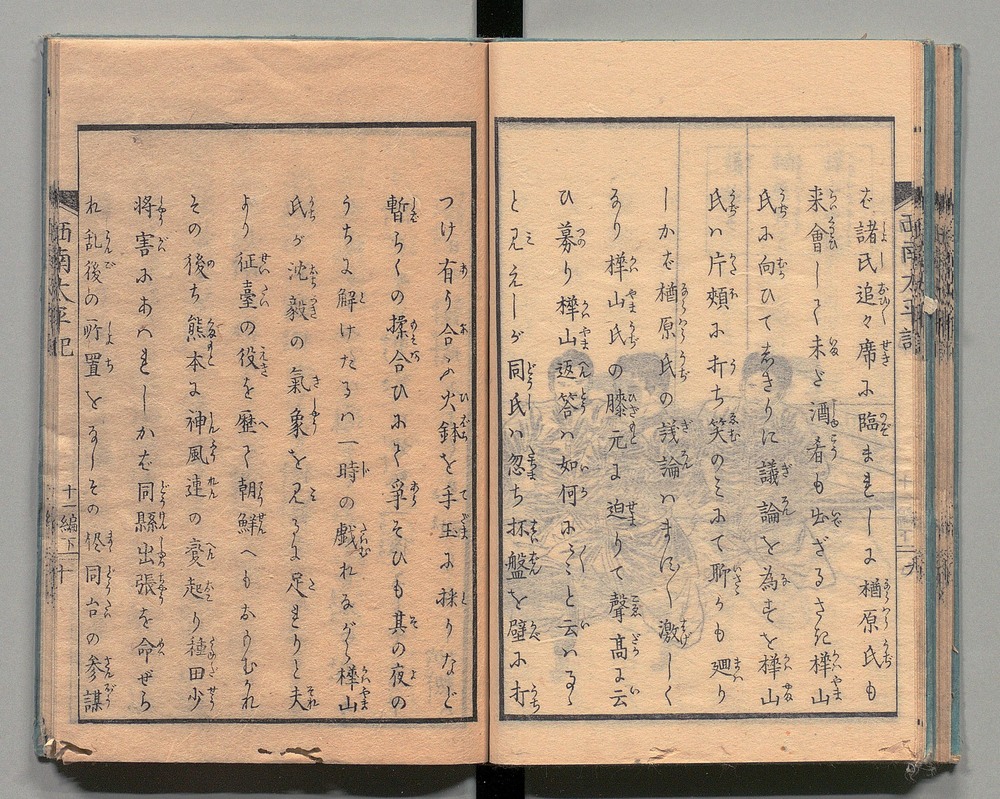 ば諸氏追々席に臨まれしに楢原氏も
来會して未だ酒肴も出ざるさき樺山
氏に向ひてしきりに議論を為すを樺山
氏ハ片頬に打ち笑のミにて聊かも廻り
しかば楢原氏の議論ハます〳〵激しく
なり樺山氏の膝元に迫りて聲高に云
ひ募り樺山返答ハ如何に〳〵と云ハるゝ
と見えしが同氏ハ忽ち抔盤を壁に打
つけ有り合ふ火鉢を手玉に採りなど
暫らくの揉合ひにて爭そひも其の夜の
うちに解けたるハ一時の戯れながら樺山
氏が沈毅の氣象を見るに足れりと夫
より征臺の役を歴て朝鮮へもおもむかれ
その後ち熊本に神風連の変起り種田少
将害にあハれしかば同縣出張を命ぜら
れ乱後の所置をなしその侭同台の参謀
西南太平記
十一編下
十
西南太平記
九